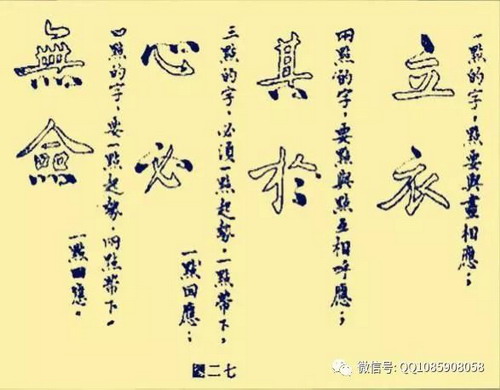 一點的字，點要與畫相應；
立衣
兩點的字，要點與點互相呼應；
其於
三點的字，必須一點起勢，一點帶下，
一點回應；
心必
四點的字，要一點起勢，兩點帶下。
一點回應。
無僉
圖二七
微信号: QQ1085908058